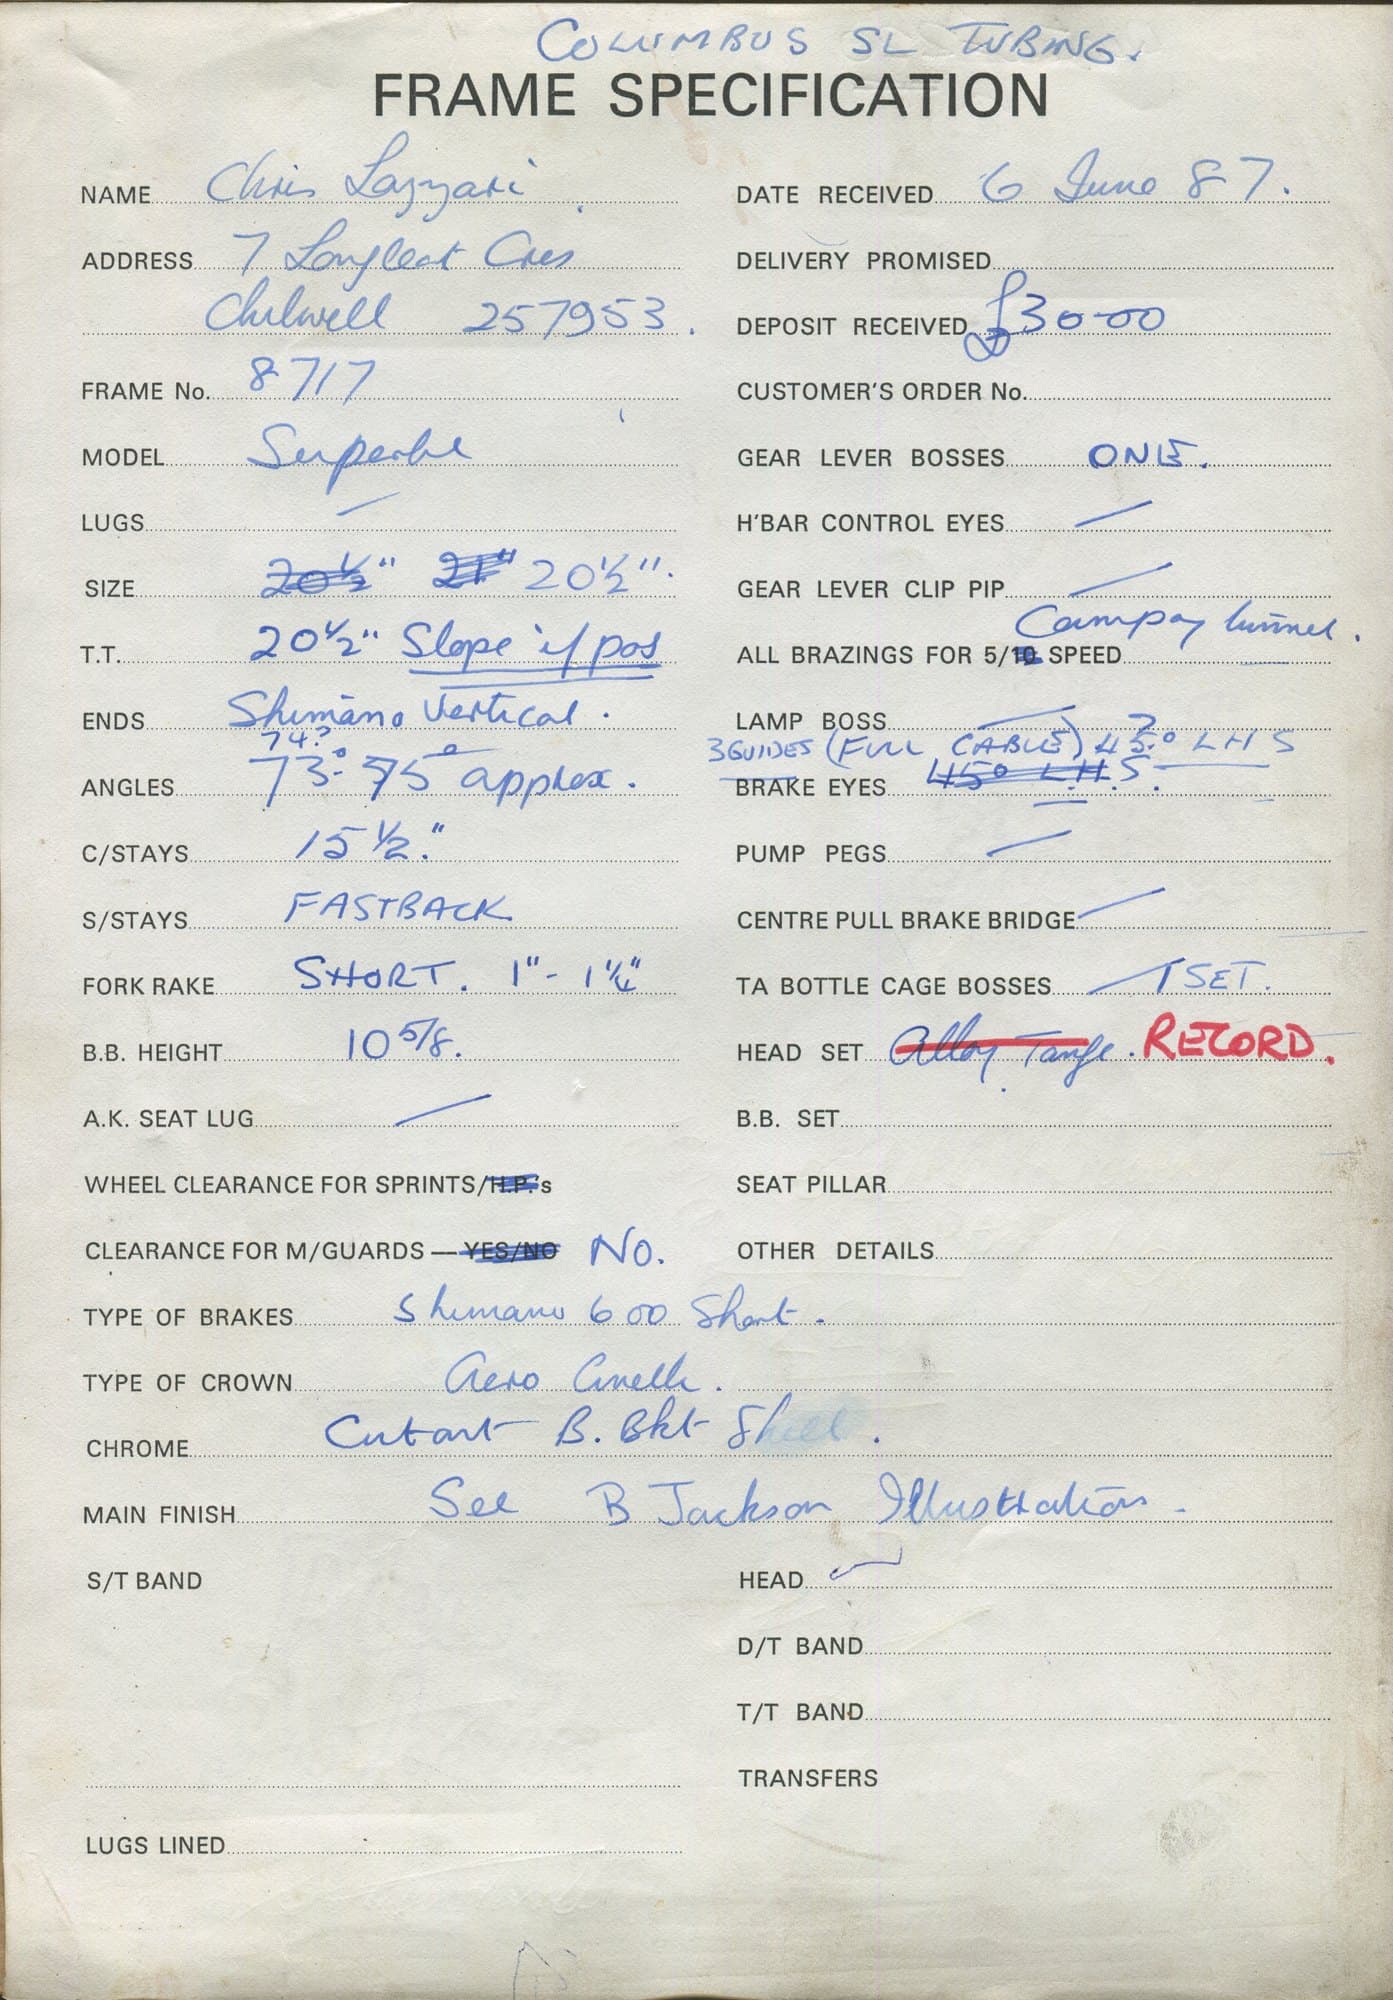 COLUMBUS SL TUBING.
FRAME SPECIFICATION
NAME Chris Lazzari
ADDRESS 7 Longleat Cres
Chilwell 257953.
FRAME No. 8717
MODEL Superbe
LUGS —
SIZE 20½" 21" 20½".
T.T. 20½" Slope if pos
ENDS Shimano Vertical.
74?
ANGLES 73° 75° approx.
C/STAYS 15½."
S/STAYS FASTBACK
FORK RAKE SHORT. 1" - 1¼"
B.B. HEIGHT 10 5/8.
A.K. SEAT LUG —
WHEEL CLEARANCE FOR SPRINTS/H.P.'s
CLEARANCE FOR M/GUARDS — YES/NO NO.
DATE RECEIVED 6 June 87.
DELIVERY PROMISED
DEPOSIT RECEIVED £30-00
CUSTOMER'S ORDER No.
GEAR LEVER BOSSES ONE.
H'BAR CONTROL EYES —
GEAR LEVER CLIP PIP —
Campag tunnel.
ALL BRAZINGS FOR 5/10 SPEED
LAMP BOSS —
3 GUIDES (FULL CABLE) 45° LHS
BRAKE EYES 45° L.H.S.
PUMP PEGS —
CENTRE PULL BRAKE BRIDGE —
TA BOTTLE CAGE BOSSES — 1 SET.
HEAD SET Alloy Tange. RECORD.
B.B. SET
SEAT PILLAR
OTHER DETAILS
TYPE OF BRAKES Shimano 600 Short.
TYPE OF CROWN Aero Cinelli.
CHROME Cutout B. Bkt Shell.
MAIN FINISH See B Jackson Illustration.
S/T BAND
HEAD
D/T BAND
T/T BAND
TRANSFERS
LUGS LINED